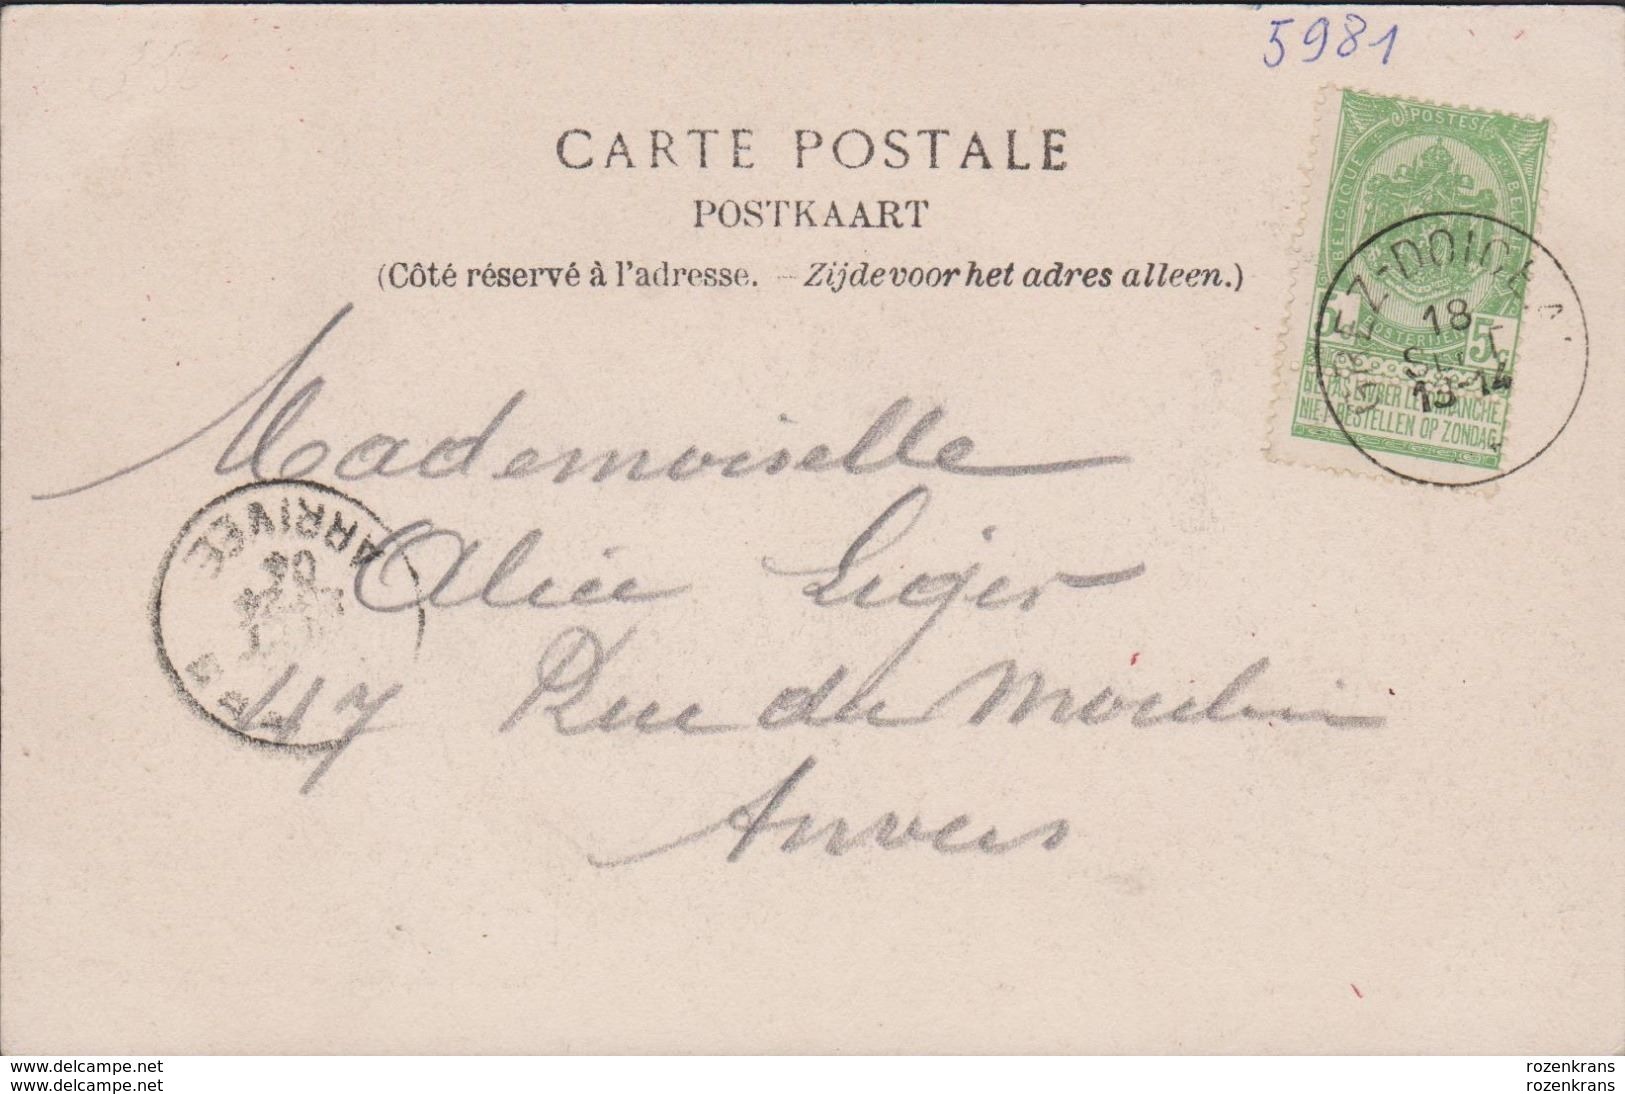 5981
CARTE POSTALE
POSTKAART
(Côté réservé à l'adresse. — Zijde voor het adres alleen.)
POSTES
BELGIQUE
BELGIË
POSTERIJEN
5c 5c
NE PAS LIVRER LE DIMANCHE.
NIET BESTELLEN OP ZONDAG.
GREZ-DOICEAU
18
SEPT
13-14
Mademoiselle
ARRIVÉE
04
Alice Leger
47 Rue du Moulin
Anvers
delcampe.net
delcampe.net
rozenkrans
rozenkrans